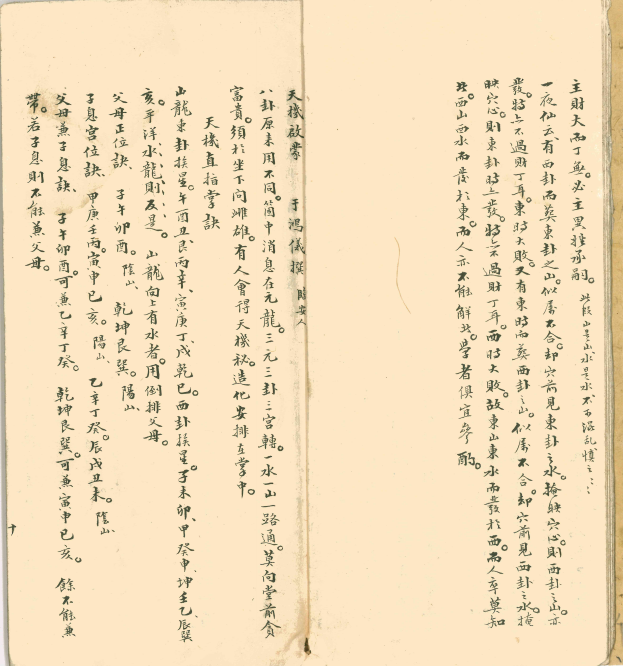 主財大而丁無。必主異姓承嗣。此股山是山水是水不可混亂慎之〻〻
一夜仙云。有西卦而葬東卦之山。似屬不合。却穴前見東卦之水。掩映穴心。則西卦之山亦
發。特上不過財丁耳。東時大敗。又有東時而葬西卦之山。似屬不合。却穴前見西卦之水。掩
映穴心。則東卦時亦發。特亦不過財丁耳。西時大敗。故東山東水而發於西。而人卒莫知
此西山西水而發於東。而人亦不能解此。學者俱宜參酌。
天機啟蒙 于鴻儀撰 臨安人
八卦原來用不同。箇中消息在元龍。三元三卦三宮轉。一水一山一路通。莫向堂前貪
富貴。須於坐下問雌雄。有人會得天機秘。造化安排在掌中。
天機直指掌訣
山龍東卦挨星。午酉丑艮丙辛、寅庚丁、戌乾巳。西卦挨星。子未卯、甲癸申、坤壬乙、辰巽
亥。平洋水龍則反是。 山龍向上有水者。用倒排父母。
父母正位訣、 子午卯酉。陰山、 乾坤艮巽。陽山、
子息宮位訣、 甲庚壬丙。寅申巳亥。陽山、 乙辛丁癸。辰戌丑未。陰山、
父母兼子息訣、 子午卯酉。可兼乙辛丁癸。 乾坤艮巽。可兼寅申巳亥。 餘不能兼
帶。若子息則不能兼父母。
十